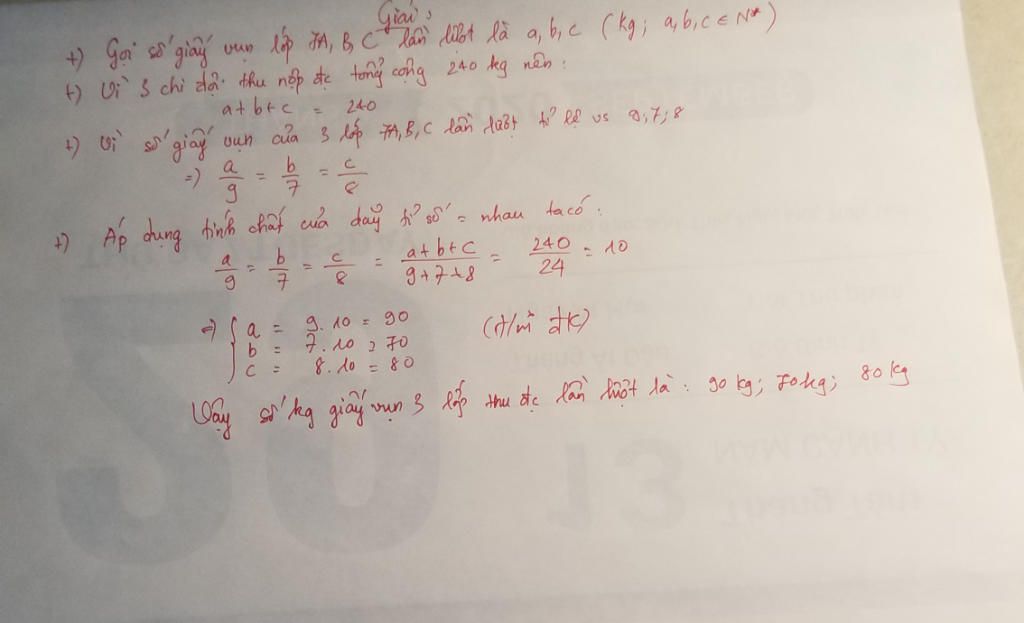 Giải:
+) Gọi số giấy vụn lớp 7A, B, C lần lượt là a, b, c (kg; a, b, c ∈ N*)
+) Vì 3 chi đội thu nộp đc tổng cộng 240 kg nên:
a + b + c = 240
+) Vì số giấy vụn của 3 lớp 7A, B, C lần lượt tỉ lệ vs 9; 7; 8
=) a/9 = b/7 = c/8
+) Áp dụng tính chất của dãy tỉ số = nhau ta có:
a/9 = b/7 = c/8 = a+b+c/9+7+8 = 240/24 = 10
=) { a = 9.10 = 90 (t/m đk)
b = 7.10 = 70
c = 8.10 = 80
Vậy số kg giấy vụn 3 lớp thu đc lần lượt là: 90 kg; 70kg; 80 kg
13
NĂM CANH TÝ